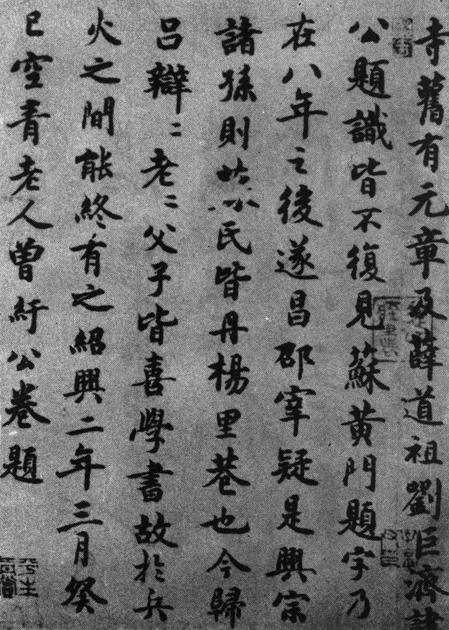 寺舊有元章及薛道祖劉巨濟諸
公題識皆不復見蘇黃門題字乃
在八年之後遂昌邵宰疑是興宗
諸孫則氏皆丹楊里巷也今歸
呂辯〻老〻父子皆喜學書故於兵
火之間能終有之紹興二年三月癸
巳空青老人曾紆公卷題